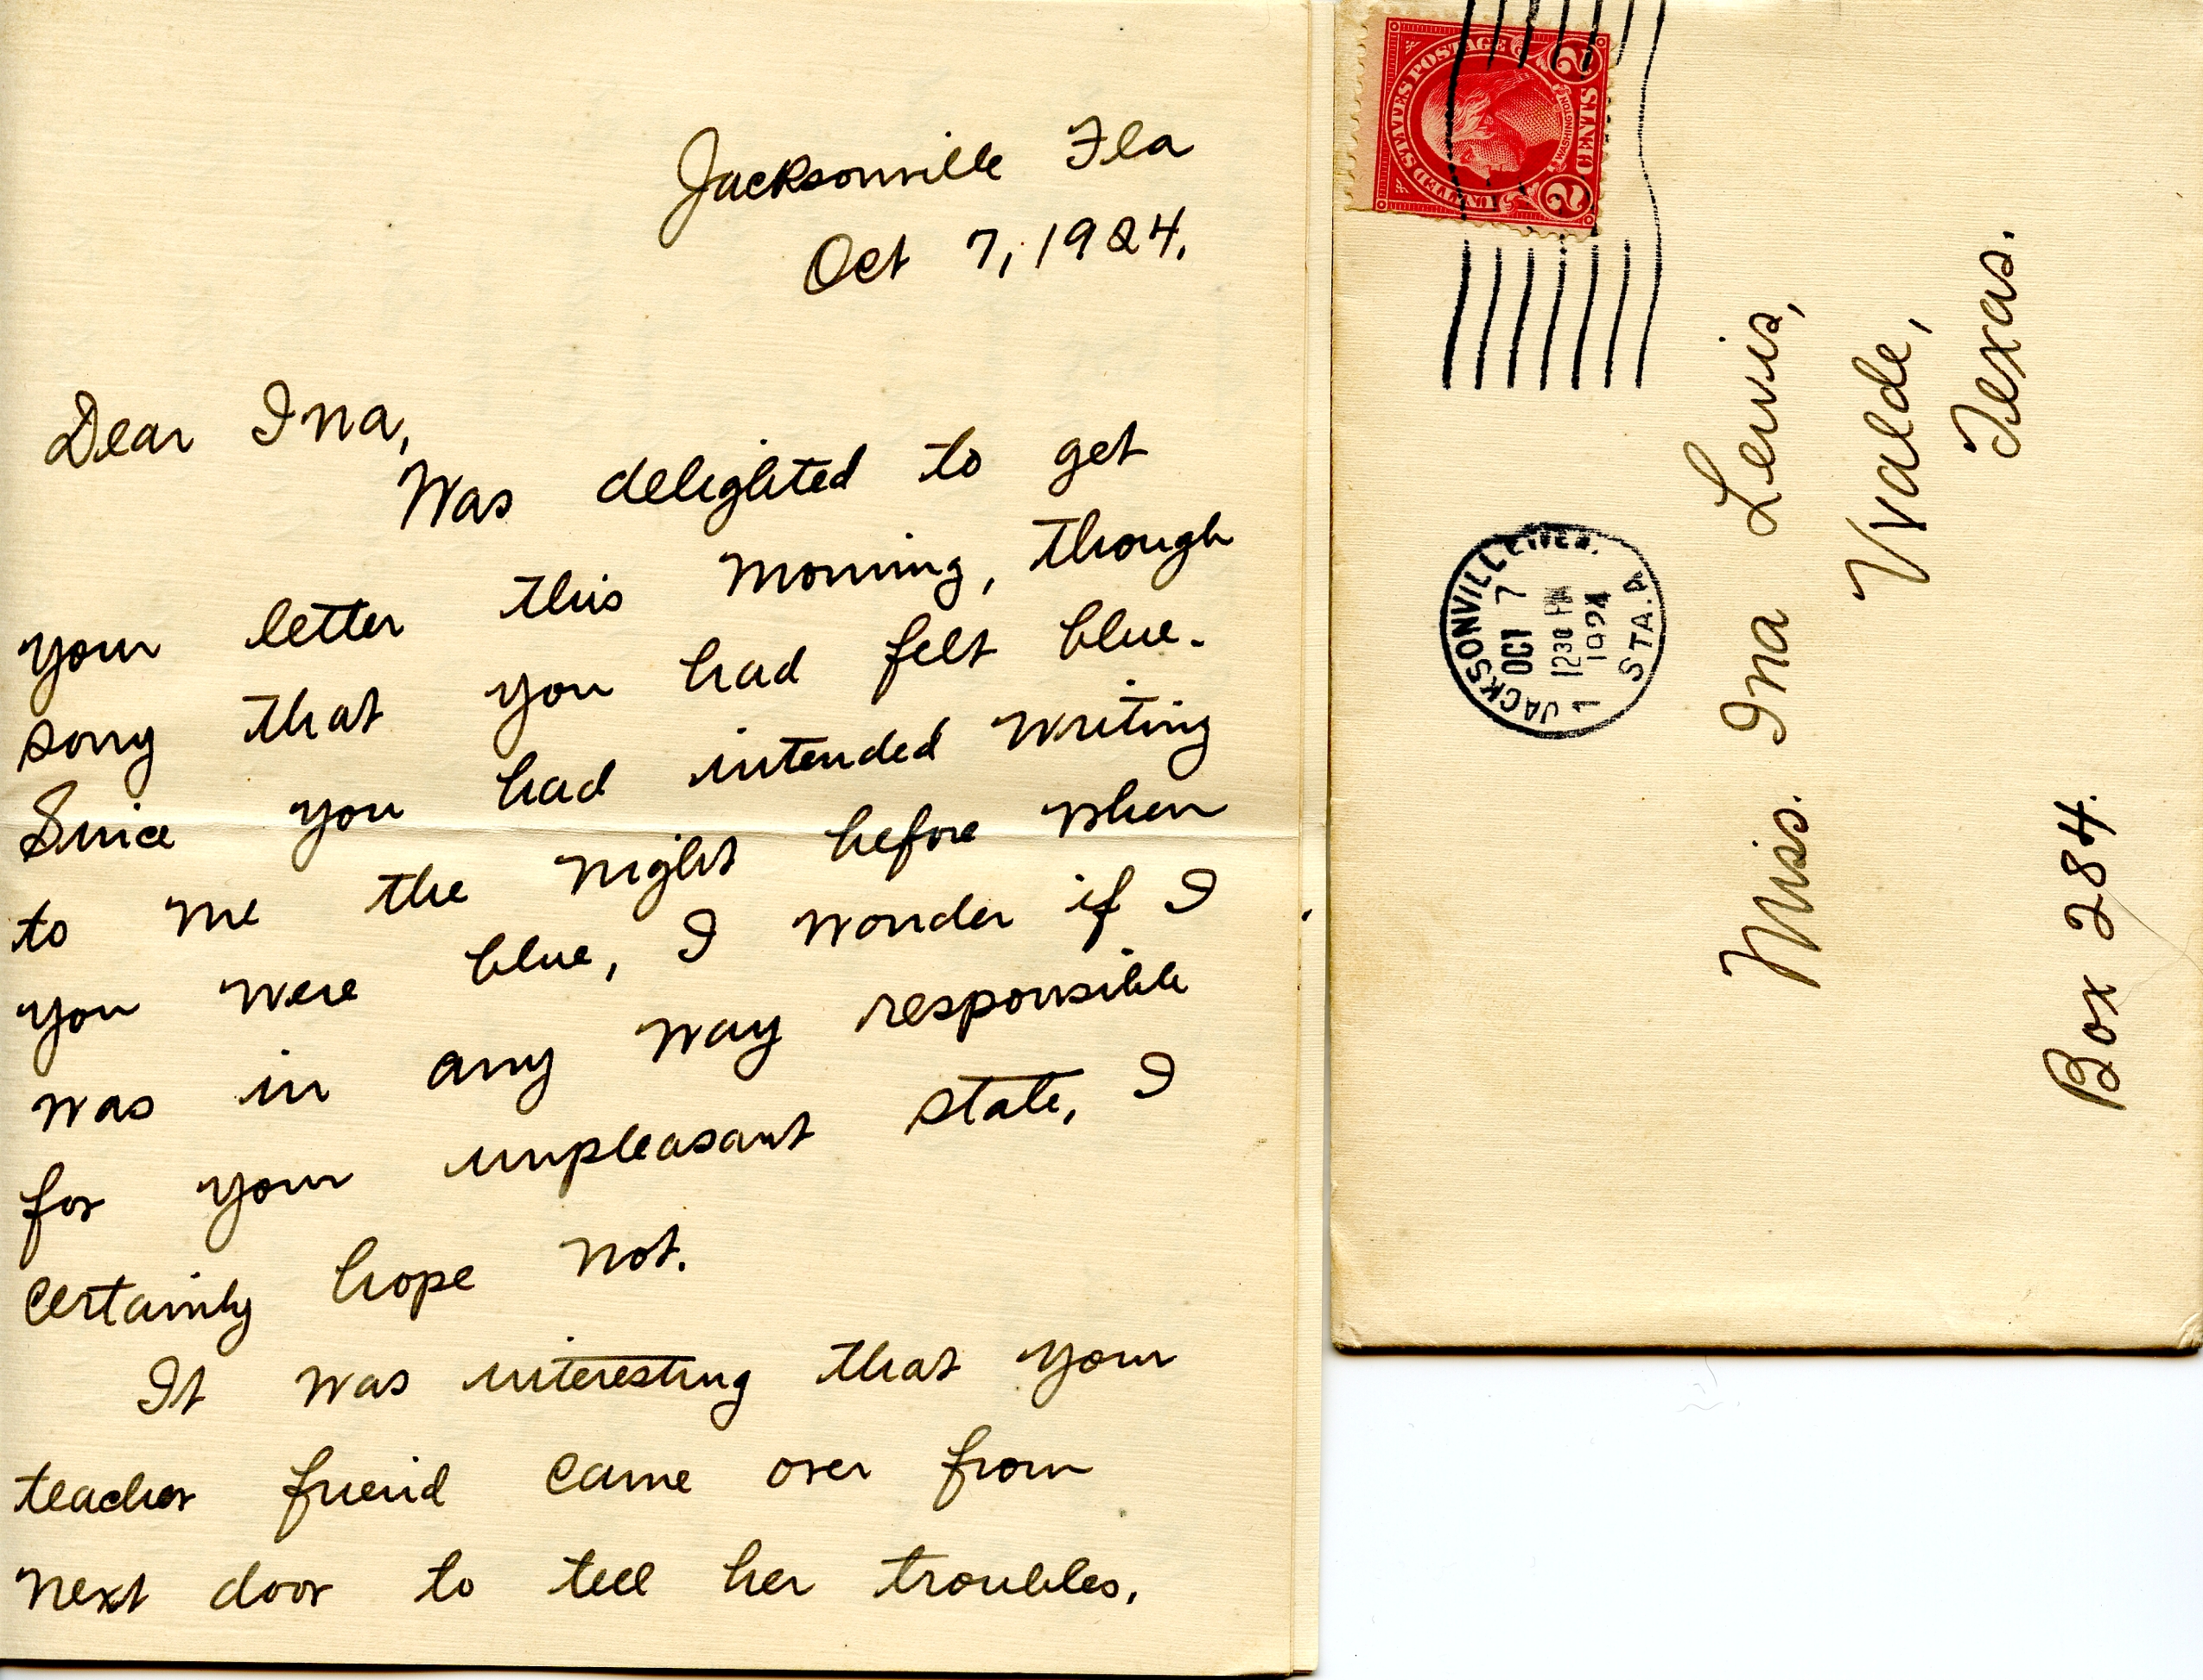 Jacksonville Fla
Oct 7, 1924.
Dear Ina,
Was delighted to get
your letter this morning, though
sorry that you had felt blue.
Since you had intended writing
to me the night before when
you were blue, I wonder if I
was in any way responsible
for your unpleasant state, I
certainly hope not.
It was interesting that your
teacher friend came over from
next door to tell her troubles.
UNITED STATES POSTAGE
WASHINGTON
2 CENTS 2
JACKSONVILLE
OCT 7
12 30 PM
1924
1 STA. A
Miss. Ina Lewis,
Uvalde,
Texas.
Box 284.